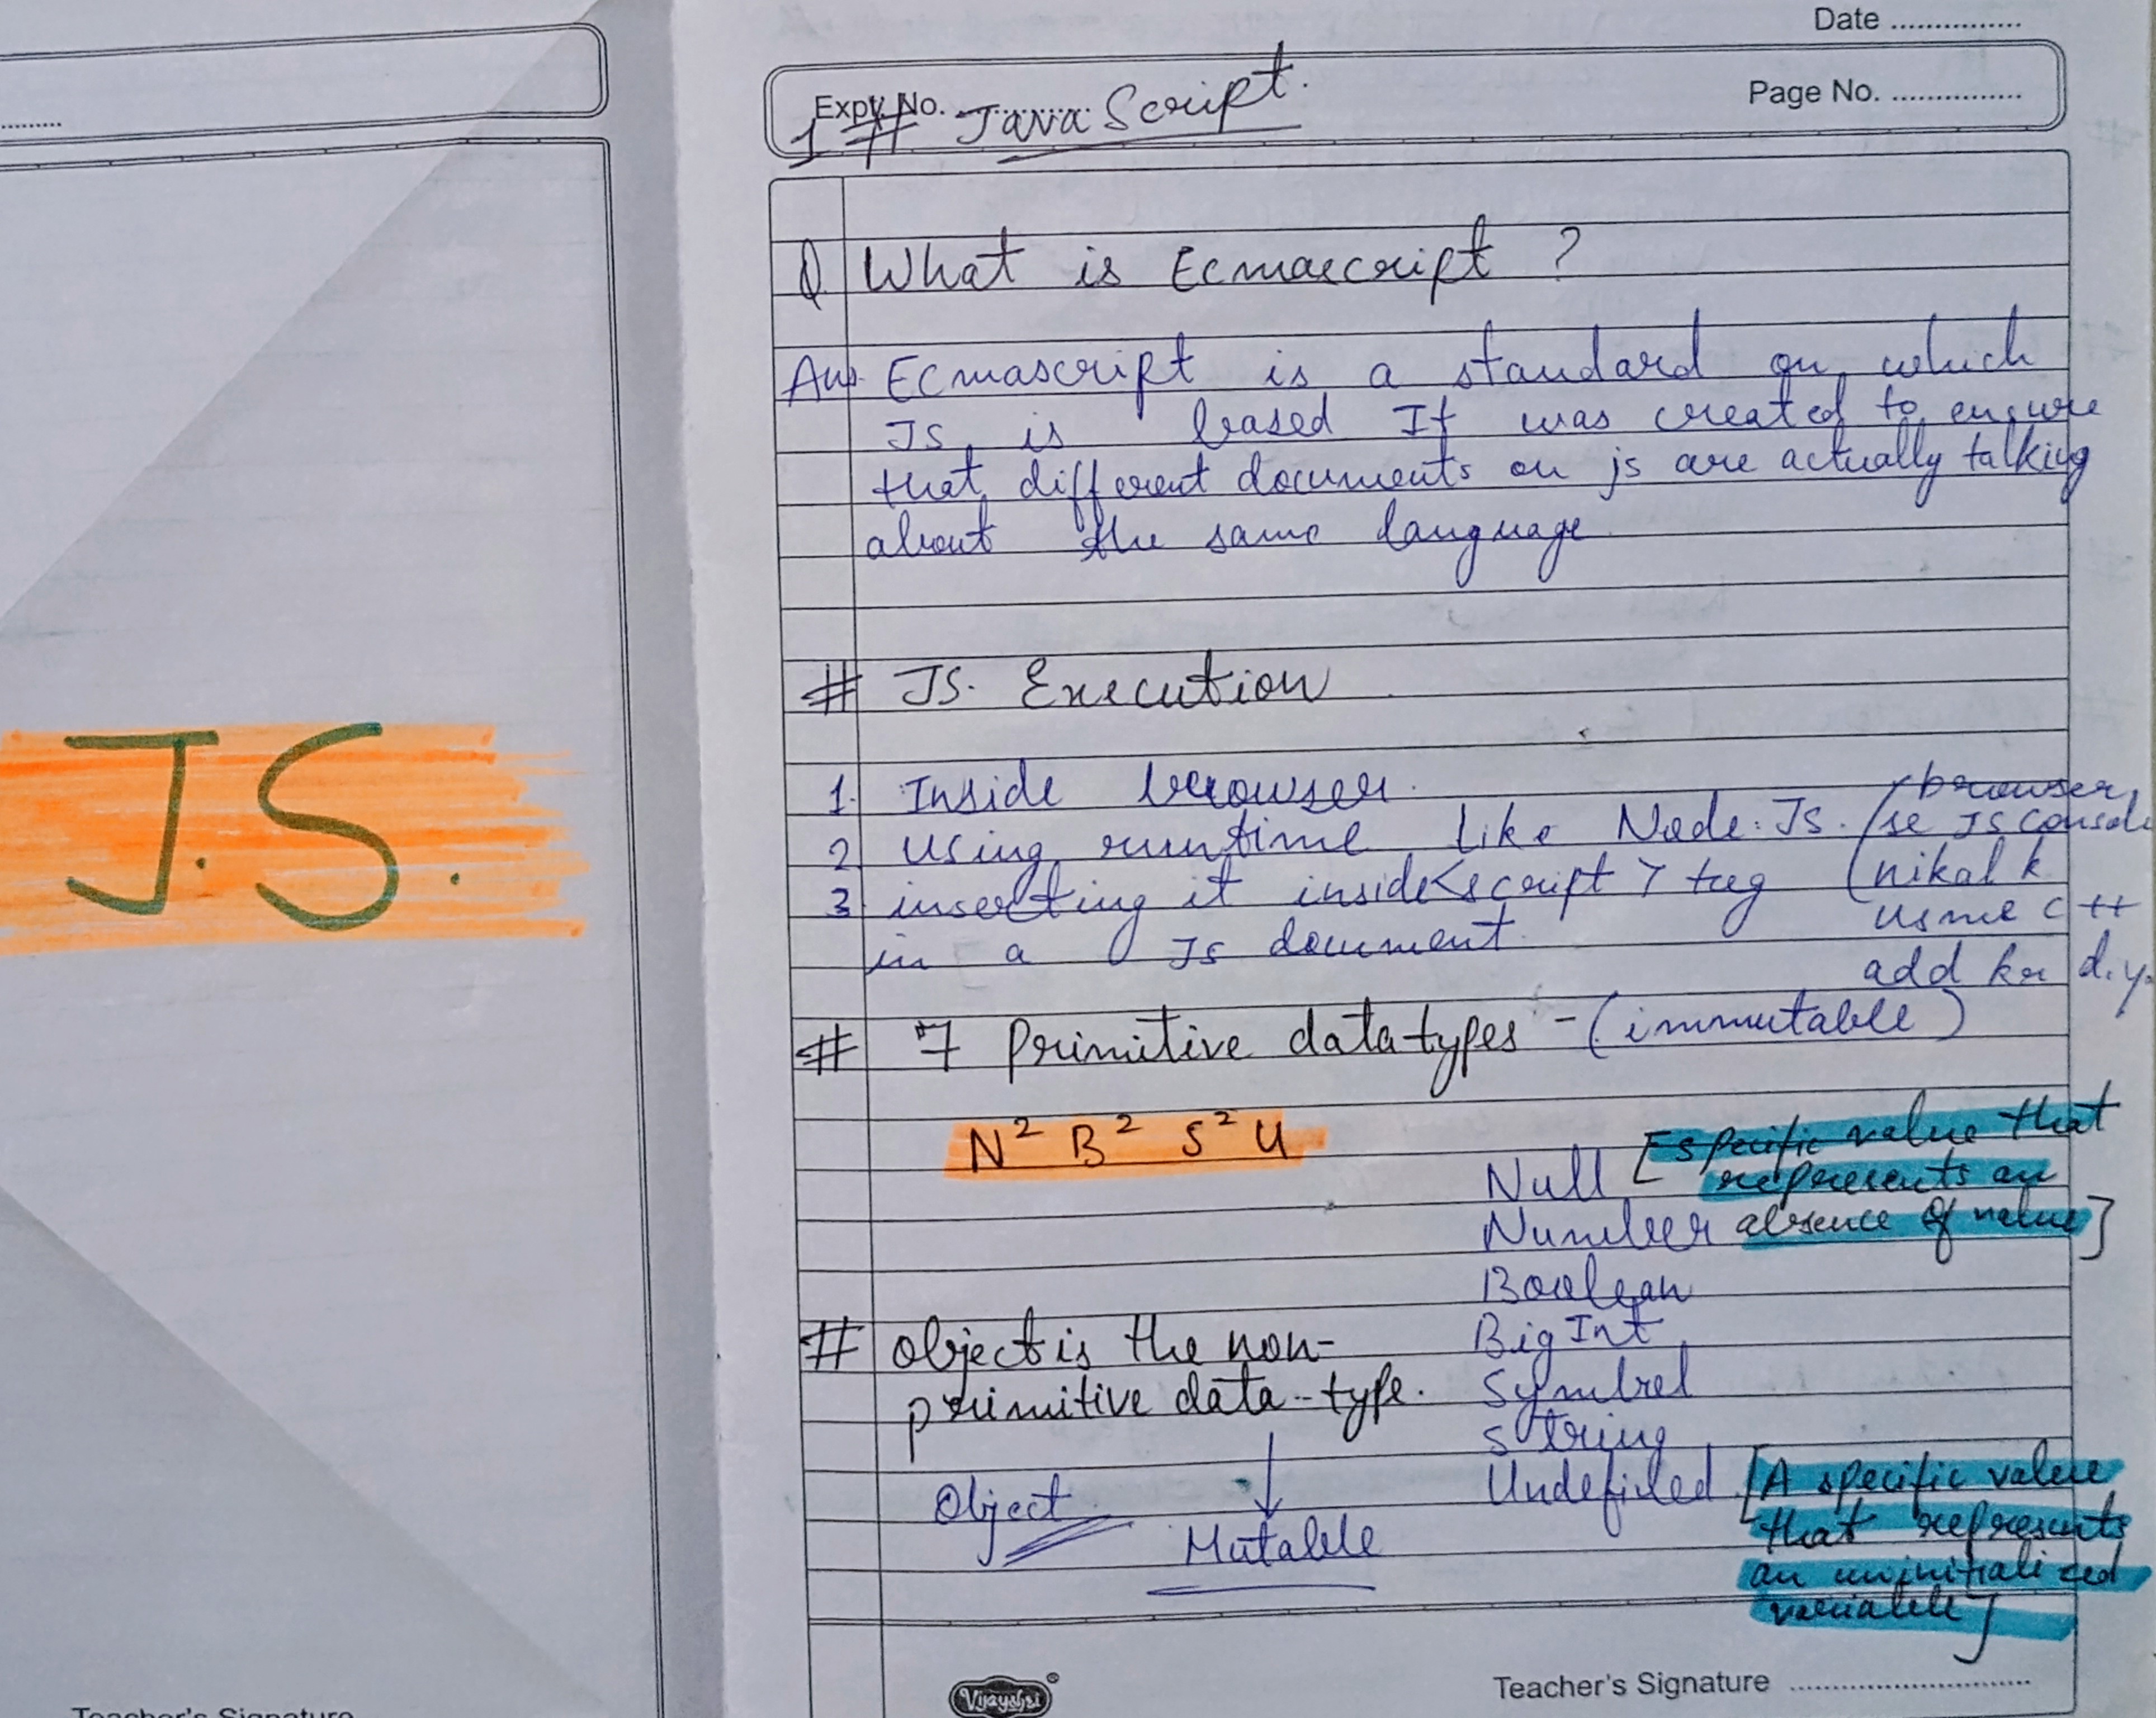 J.S.
Teacher's Signature
Date
Expt. No.
Page No.
1 # JavaScript.
Q. What is Ecmascript ?
Ans. Ecmascript is a standard on which
JS is based It was created to ensure
that different documents on js are actually talking
about the same language
# JS. Execution
1. Inside browser.
2. Using runtime like Node.JS.
3. inserting it inside <script> tag
in a JS document.
(browser
se JS console
nikal k
usme c ++
add kr d.y.
# 7 Primitive data types - (immutable)
N² B² S² U
Null [specific value that
represents an
absence of value]
Number
Boolean
BigInt
Symbol
String
Undefined [A specific value
that represents
an uninitialized
variable]
# object is the non-
primitive data-type.
Object
Mutable
Vijayshri ®
Teacher's Signature